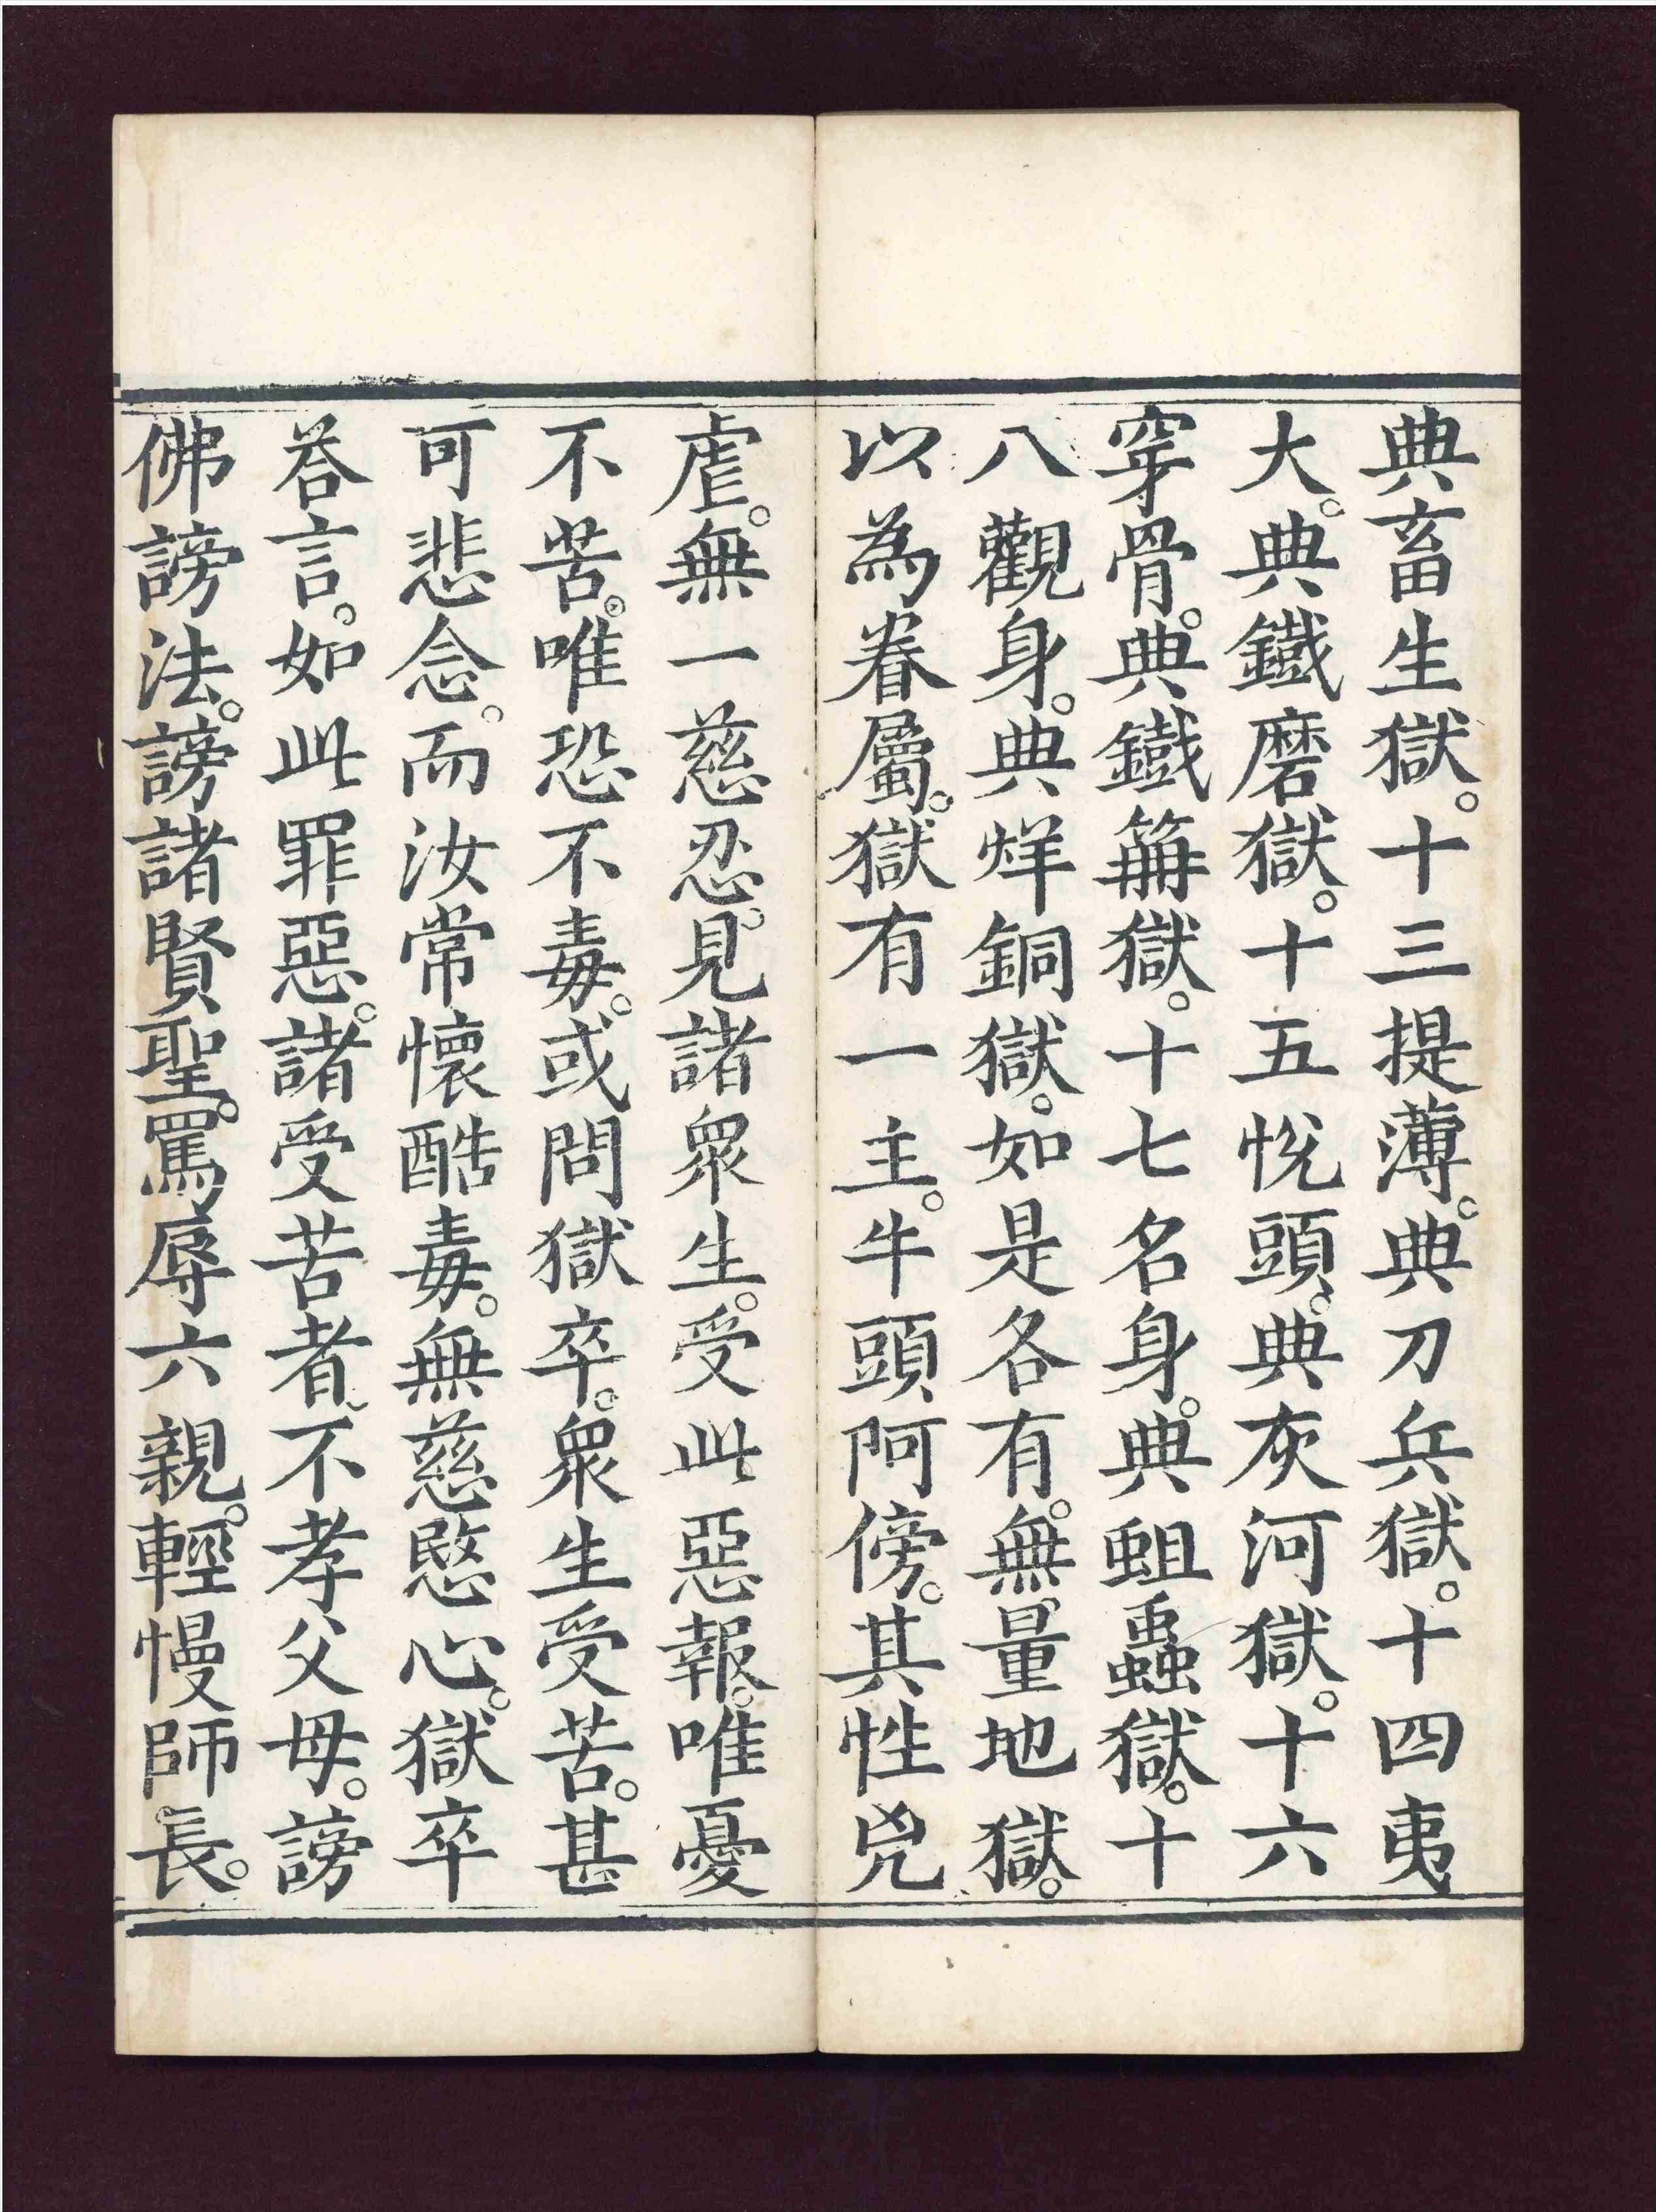 典畜生獄。十三提薄。典刀兵獄。十四夷
大。典鐵磨獄。十五悅頭。典灰河獄。十六
穿骨。典鐵䈂獄。十七名身。典蛆蟲獄。十
八觀身。典烊銅獄。如是各有。無量地獄。
以為眷屬。獄有一主。牛頭阿傍。其性兇
虐。無一慈忍。見諸眾生。受此惡報。唯憂
不苦。唯恐不毒。或問獄卒。眾生受苦。甚
可悲念。而汝常懷酷毒。無慈愍心。獄卒
荅言。如此罪惡。諸受苦者。不孝父母。謗
佛謗法。謗諸賢聖。罵辱六親。輕慢師長。